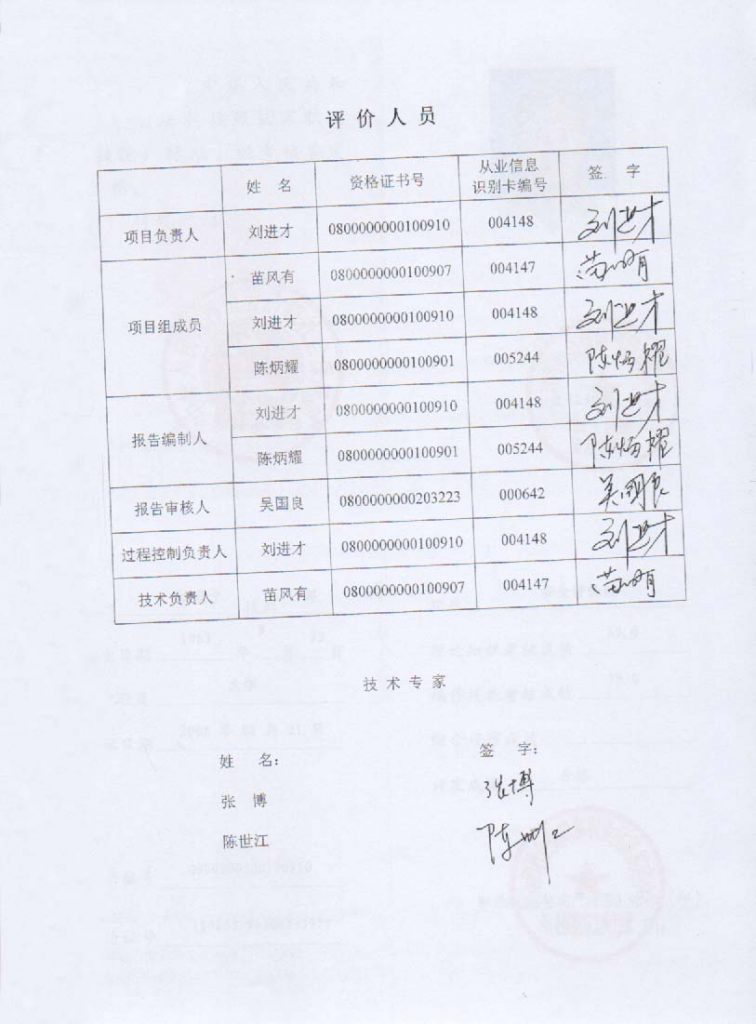 评价人员
姓 名 资格证书号 从业信息识别卡编号 签 字
项目负责人 刘进才 0800000000100910 004148 刘进才
项目组成员 苗风有 0800000000100907 004147 苗风有
刘进才 0800000000100910 004148 刘进才
陈炳耀 0800000000100901 005244 陈炳耀
报告编制人 刘进才 0800000000100910 004148 刘进才
陈炳耀 0800000000100901 005244 陈炳耀
报告审核人 吴国良 0800000000203223 000642 吴国良
过程控制负责人 刘进才 0800000000100910 004148 刘进才
技术负责人 苗风有 0800000000100907 004147 苗风有
技术专家
姓 名： 签 字：
张 博 张博
陈世江 陈世江